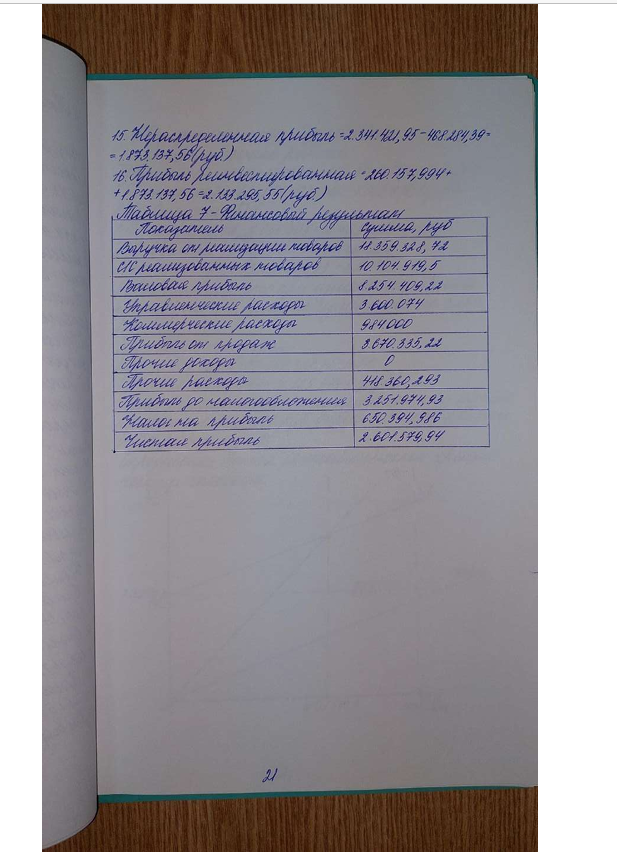 15. Нераспределенная прибыль = 2.341.421,95 - 468.284,39 =
= 1.873.137,56 (руб)
16. Прибыль реинвестированная = 260.157,994 +
+ 1.873.137,56 = 2.133.295,55 (руб)
Таблица 7 - Финансовый результат
Показатель сумма, руб
Выручка от реализации товаров 18.359.328,72
С/С реализованных товаров 10.104.919,5
Валовая прибыль 8.254.409,22
Управленческие расходы 3.600.074
Коммерческие расходы 984000
Прибыль от продаж 3.670.335,22
Прочие доходы 0
Прочие расходы 418.360,293
Прибыль до налогообложения 3.251.974,93
Налог на прибыль 650.394,986
Чистая прибыль 2.601.579,94
21